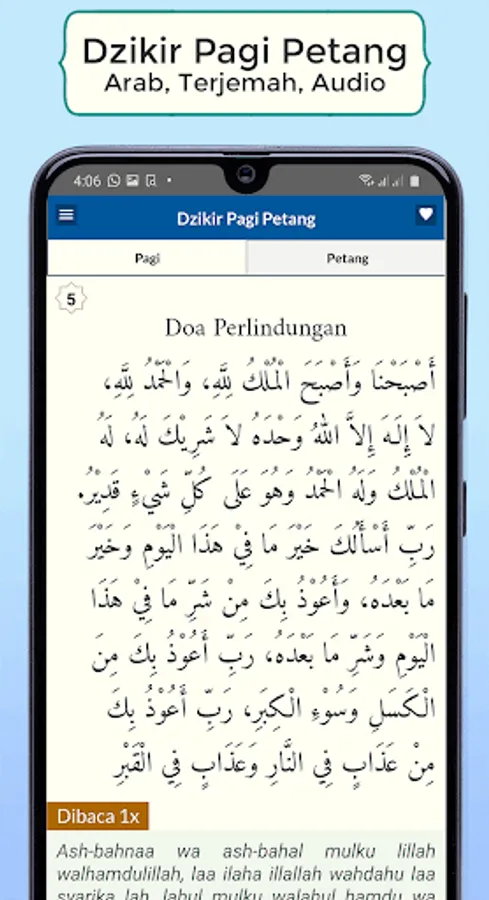 Dzikir Pagi Petang
Arab, Terjemah, Audio
4:06
Dzikir Pagi Petang
Pagi
Petang
5
Doa Perlindungan
أَصْبَحْنَا وَأَصْبَحَ الْمُلْكُ لِلَّهِ، وَالْحَمْدُ لِلَّهِ،
لاَ إِلَهَ إِلاَّ اللهُ وَحْدَهُ لاَ شَرِيْكَ لَهُ، لَهُ
الْمُلْكُ وَلَهُ الْحَمْدُ وَهُوَ عَلَى كُلِّ شَيْءٍ قَدِيْرُ.
رَبِّ أَسْأَلُكَ خَيْرَ مَا فِيْ هَذَا الْيَوْمِ وَخَيْرَ
مَا بَعْدَهُ، وَأَعُوْذُ بِكَ مِنْ شَرِّ مَا فِيْ هَذَا
الْيَوْمِ وَشَرِّ مَا بَعْدَهُ، رَبِّ أَعُوْذُ بِكَ مِنَ
الْكَسَلِ وَسُوْءِ الْكِبَرِ، رَبِّ أَعُوْذُ بِكَ
مِنْ عَذَابٍ فِي النَّارِ وَعَذَابٍ فِي الْقَبْرِ
Dibaca 1x
Ash-bahnaa wa ash-bahal mulku lillah
walhamdulillah, laa ilaha illallah wahdahu laa
syarika lah, lahul mulku walahul hamdu wa